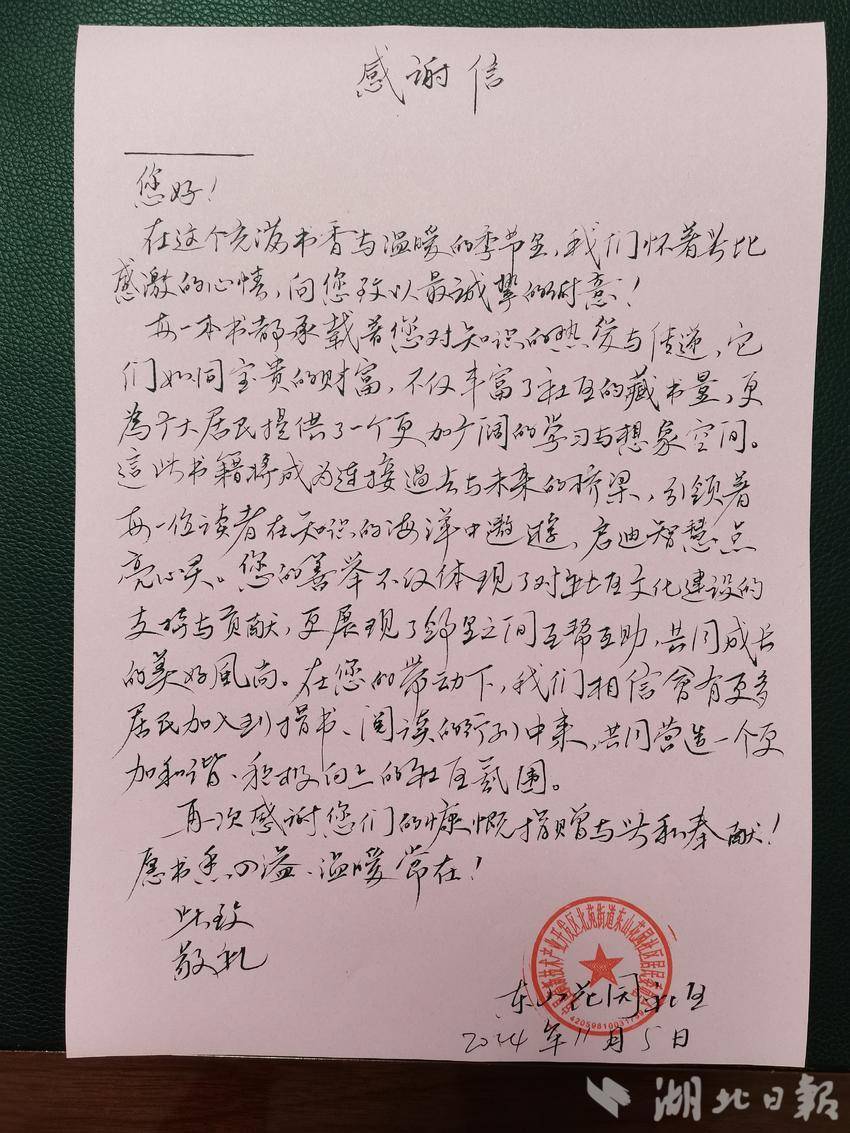 感谢信
您好!
在这个充满书香与温暖的季节里,我们怀着无比
感激的心情,向您致以最诚挚的谢意!
每一本书都承载着您对知识的热爱与传递,它
们如同宝贵的财富,不仅丰富了社区的藏书量,更
為广大居民提供了一个更加广阔的学习与想象空间。
這些书籍将成为连接過去与未来的桥梁,引领着
每一位读者在知识的海洋中遨遊,启迪智慧、点
亮心灵。您的善举不仅体现了对社区文化建设的
支持与贡献,更展现了邻里之间互帮互助,共同成长
的美好風尚。在您的带动下,我们相信會有更多
居民加入到捐书、阅读的行列中来,共同营造一个更
加和谐、积极向上的社区氛围。
再一次感谢您们的慷慨捐赠与无私奉献!
愿书香四溢、温暖常在!
此致
敬礼
东山花园社区
2024年11月5日
湖北日報